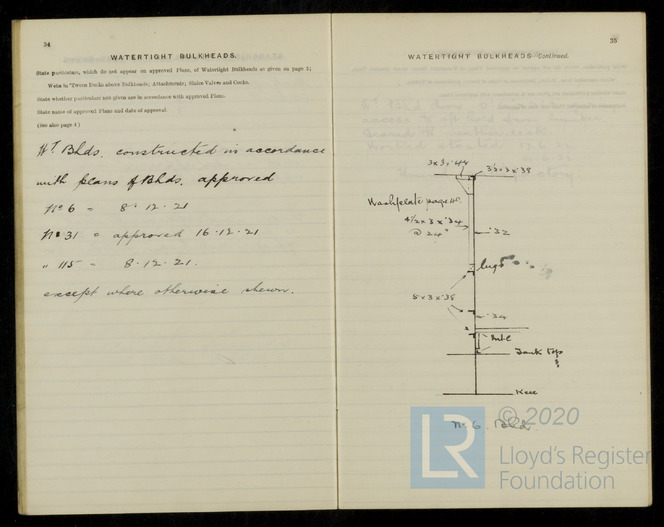 34
WATERTIGHT BULKHEADS.
State particulars, which do not appear on approved Plans, of Watertight Bulkheads as given on page 3;
Webs in 'Tween Decks above Bulkheads; Attachments; Sluice Valves and Cocks.
State whether particulars not given are in accordance with approved Plans.
State name of approved Plans and date of approval
(See also page 4)
WT Bhds. constructed in accordance
with plans of Bhds. approved
No 6 = 8.12.21
No 31 = approved 16.12.21
" 115 = 8.12.21.
except where otherwise shewn.
35
WATERTIGHT BULKHEADS-Continued.
3x3x.44
3½x3x.38
Washplate page
4½x3x.34
@ 24"
.32
lugs
5x3x.38
.34
Tank top
Keel
No 6. Bhd.
LR
© 2020
Lloyd's Register
Foundation